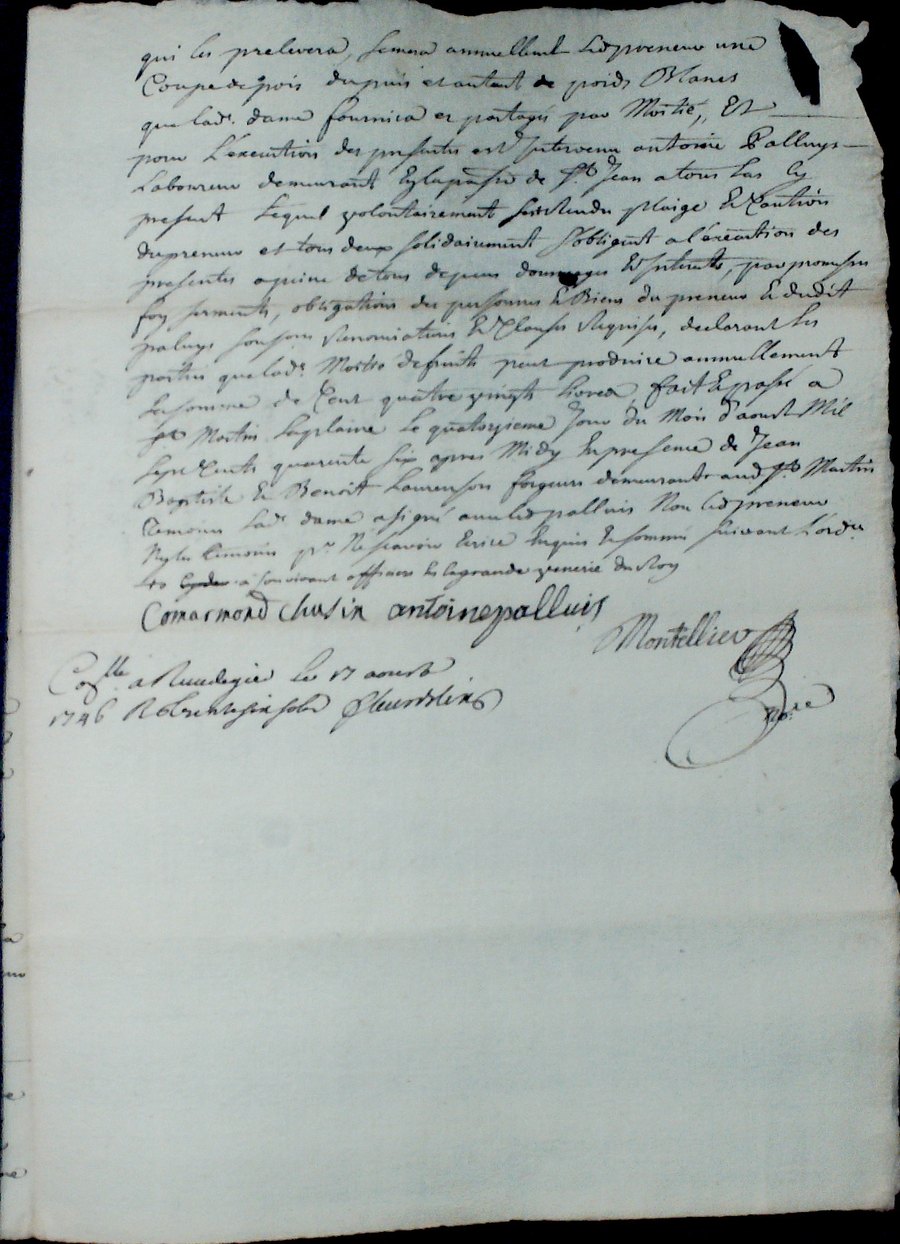 qui les prelevera, semera annuellemt ledpreneur une
Coupe de pois du puis et autant de poids Blancs
que lade. dame fournira et partagés par Moitié, Et
pour L'execution des presentes est Intervenu antoine Palluys
Laboureur demeurant En la parsse de st. Jean a tous Las Cy
present Lequel volontairement sest Rendu plaige Et Caution
dupreneur et tous deux solidairement sobligent a l'execution des
presentes a peine de tous depens dommages Et Interets, par promesses
foy serments, obligations des personnes Et Biens du preneur Et dudit
paluys soumissions Renonciations Et Clauses Requises, declarant les
parties que lade. Moitié de fruits peut produire annuellement
La somme de Cent quatre vingt Livres, fait Et passé a
st Martin Laplaine Le quatorzieme Jour du Mois d'aoust Mil
sept Cents quarente six apres Midy En presence de Jean
Baptiste Et Benoit Laurenson forgeurs demeurants aud st. Martin
temoins lade dame a signé avec led palluis Non led preneur
Ny les temoins pr. Ne scavoir Ecrire Enquis Et sommés suivant L'ordce
officiers de la grande venerie du Roy
Comarmond Chusin antoine palluis
Montellier
nore
Conlle a Rivedegier Le 17 aoust
1746 R